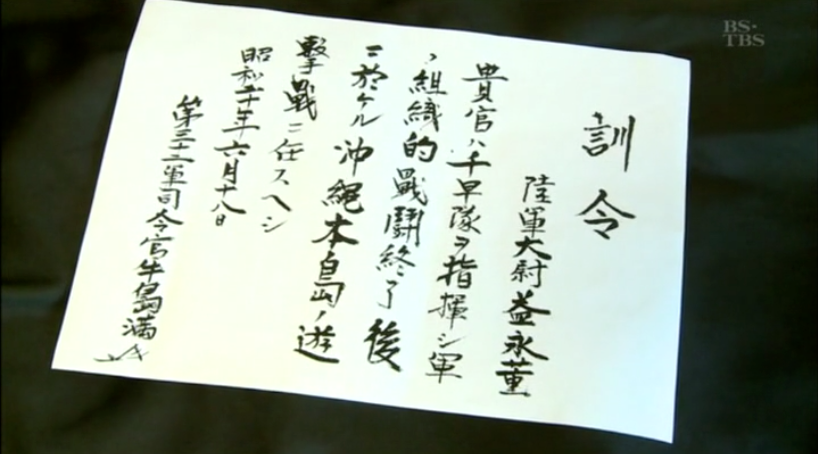 訓令
陸軍大尉益永董
貴官ハ千早隊ヲ指揮シ軍
ノ組織的戰鬪終了後
ニ於ケル沖縄本島ノ遊
擊戰ニ任スヘシ
昭和二十年六月十八日
第三十二軍司令官牛島満
BS-TBS